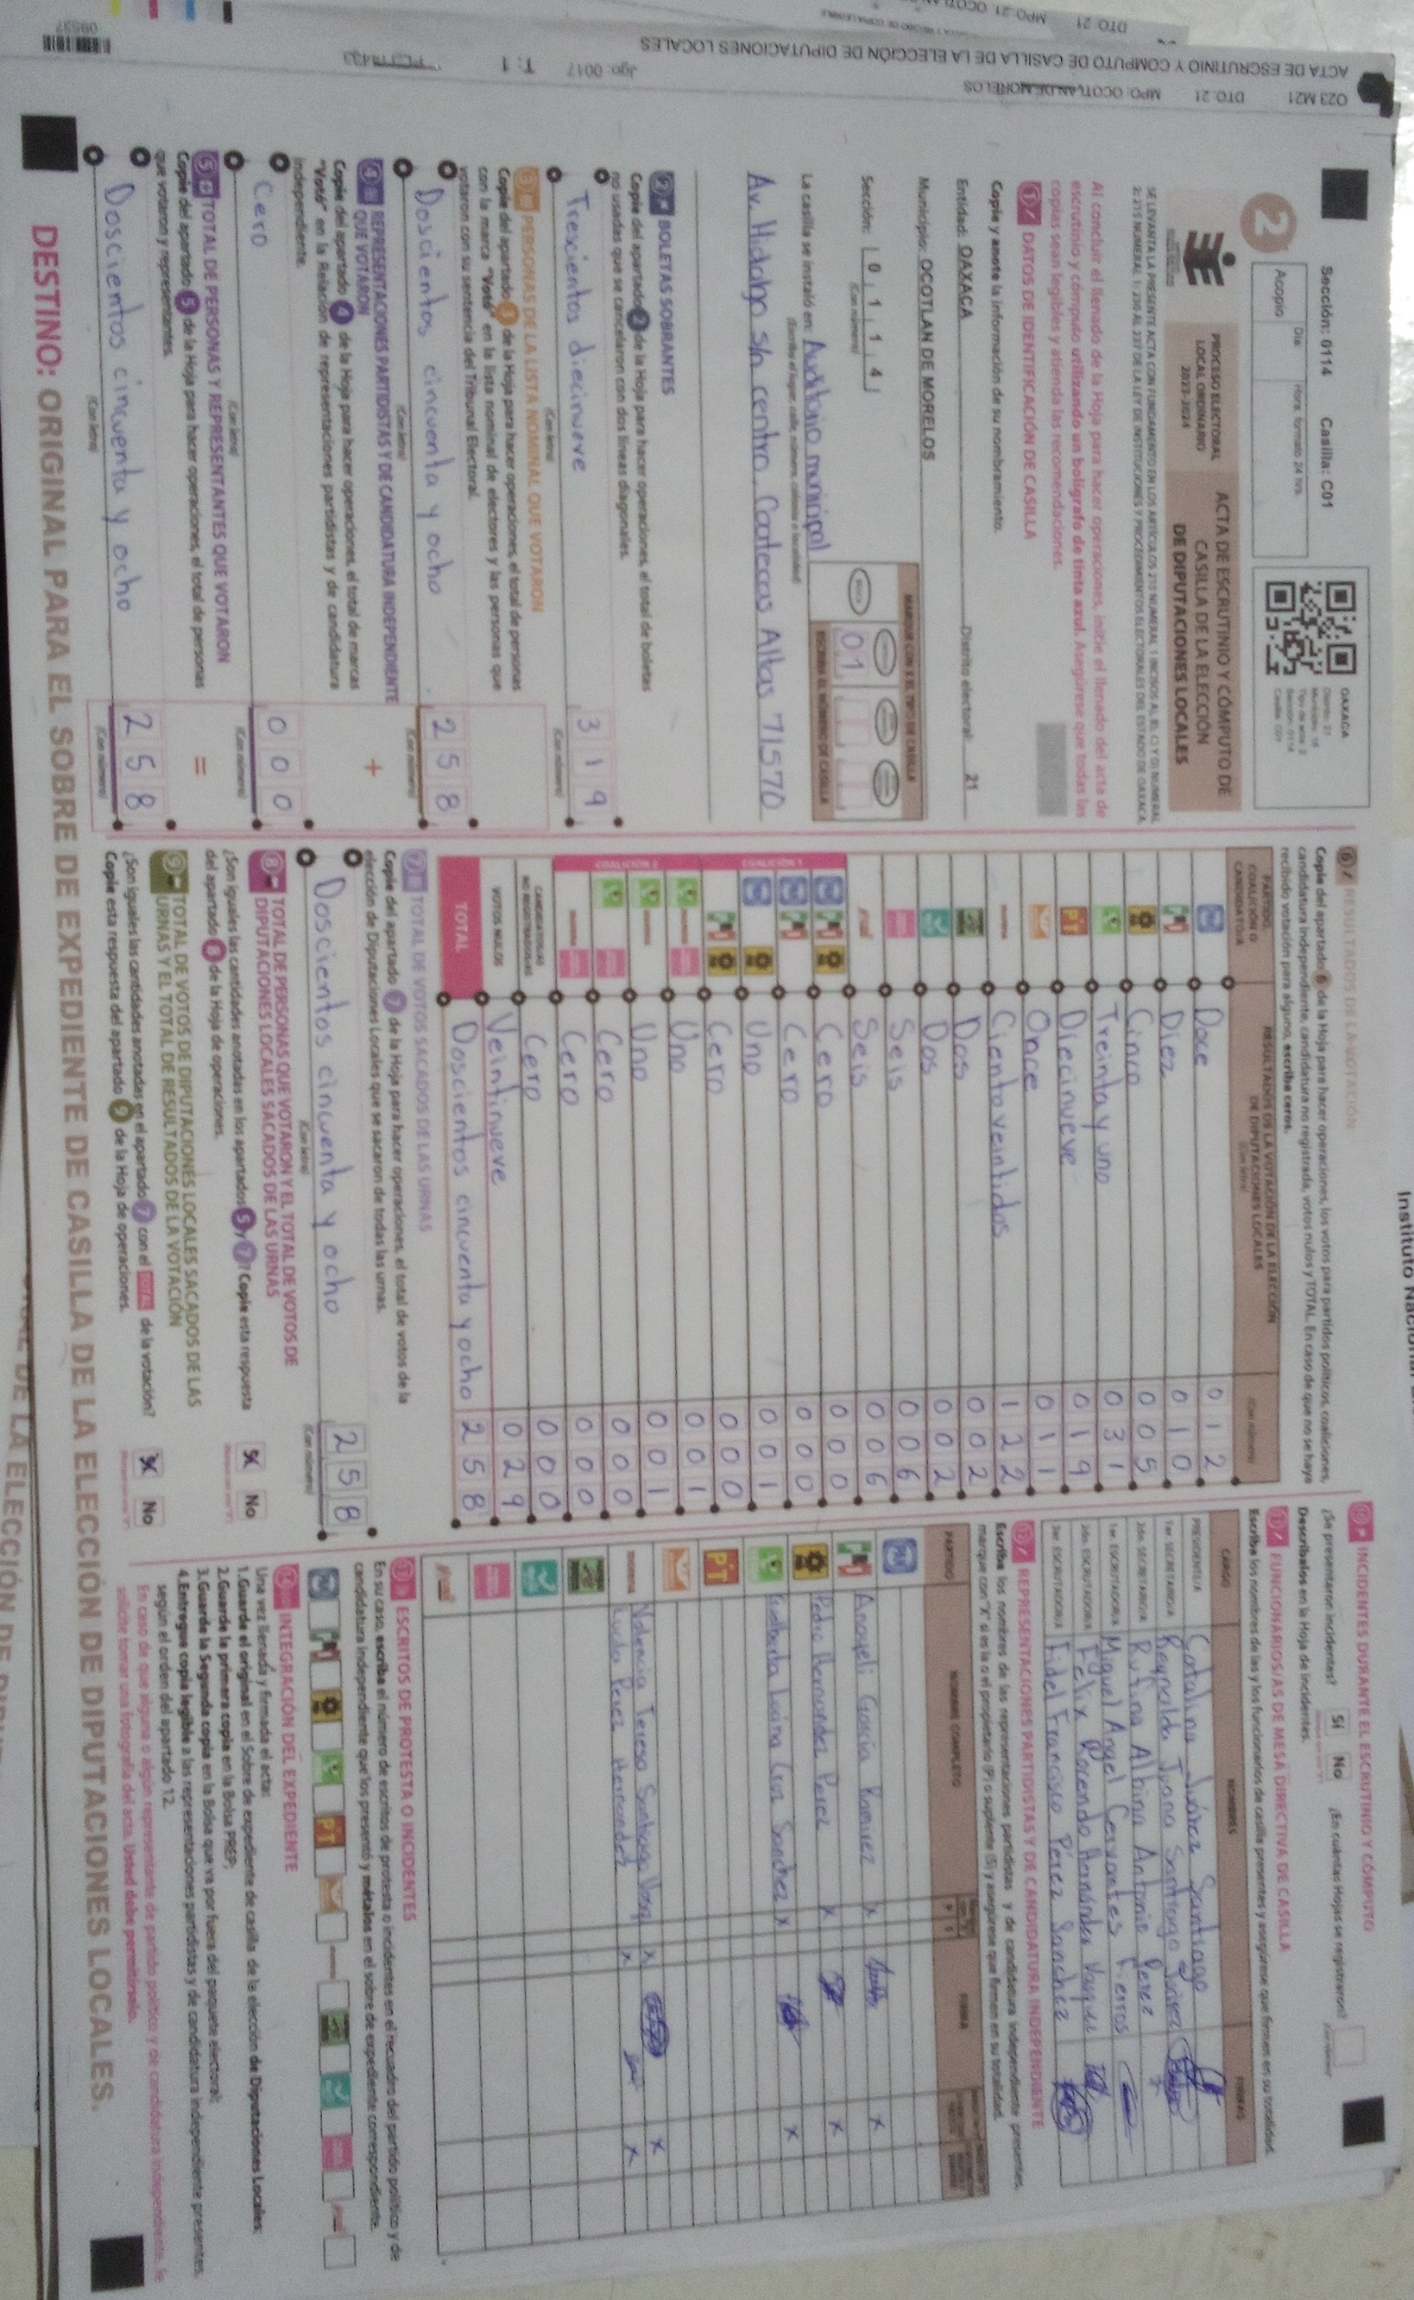 Sección: 0114 Casilla: C01
2
Acopio
Día:
Hora: formato 24 hrs.
OAXACA
PROCESO ELECTORAL
LOCAL ORDINARIO
2023-2024
ACTA DE ESCRUTINIO Y CÓMPUTO DE
CASILLA DE LA ELECCIÓN
DE DIPUTACIONES LOCALES
Al concluir el llenado de la Hoja para hacer operaciones, inicie el llenado del acta de
escrutinio y cómputo utilizando un bolígrafo de tinta azul. Asegúrese que todas las
copias sean legibles y atienda las recomendaciones.
1 DATOS DE IDENTIFICACIÓN DE CASILLA
Copie y anote la información de su nombramiento.
Entidad: OAXACA Distrito electoral: 21
Municipio: OCOTLAN DE MORELOS
Sección: 0 1 1 4
(Con número)
01
La casilla se instaló en: Auditorio municipal
Av. Hidalgo s/n centro, Coatecas Altas 71570
2 BOLETAS SOBRANTES
Copie del apartado 2 de la Hoja para hacer operaciones, el total de boletas
no usadas que se cancelaron con dos líneas diagonales.
Trescientos diecinueve 3 1 9
(Con letra) (Con número)
3 PERSONAS DE LA LISTA NOMINAL QUE VOTARON
Copie del apartado 3 de la Hoja para hacer operaciones, el total de personas
con la marca "Votó" en la lista nominal de electores y las personas que
votaron con su sentencia del Tribunal Electoral.
Doscientos cincuenta y ocho 2 5 8
(Con letra) (Con número)
4 REPRESENTACIONES PARTIDISTAS Y DE CANDIDATURA INDEPENDIENTE
QUE VOTARON
+
Copie del apartado 4 de la Hoja para hacer operaciones, el total de marcas
"Votó" en la Relación de representaciones partidistas y de candidatura
independiente.
Cero 0 0 0
(Con letra) (Con número)
5 TOTAL DE PERSONAS Y REPRESENTANTES QUE VOTARON
=
Copie del apartado 5 de la Hoja para hacer operaciones, el total de personas
que votaron y representantes.
Doscientos cincuenta y ocho 2 5 8
(Con letra) (Con número)
6 RESULTADOS DE LA VOTACIÓN
Copie del apartado 6 de la Hoja para hacer operaciones, los votos para partidos políticos, coaliciones,
candidatura independiente, candidatura no registrada, votos nulos y TOTAL. En caso de que no se haya
recibido votación para alguno, escriba ceros.
PARTIDO,
COALICIÓN O
CANDIDATO/A
RESULTADOS DE LA VOTACIÓN DE LA ELECCIÓN
DE DIPUTACIONES LOCALES
(Con letra)
(Con número)
Doce 0 1 2
Diez 0 1 0
Cinco 0 0 5
Treinta y uno 0 3 1
PT Diecinueve 0 1 9
Once 0 1 1
Ciento veintidos 1 2 2
Dos 0 0 2
Dos 0 0 2
Seis 0 0 6
Seis 0 0 6
COALICIÓN 1
Cero 0 0 0
Cero 0 0 0
Uno 0 0 1
Cero 0 0 0
COALICIÓN 2
Uno 0 0 1
Uno 0 0 1
Cero 0 0 0
Cero 0 0 0
CANDIDATURAS
NO REGISTRADAS
Cero 0 0 0
VOTOS NULOS Veintinueve 0 2 9
TOTAL Doscientos cincuenta y ocho 2 5 8
7 TOTAL DE VOTOS SACADOS DE LAS URNAS
Copie del apartado 7 de la Hoja para hacer operaciones, el total de votos de la
elección de Diputaciones Locales que se sacaron de todas las urnas.
Doscientos cincuenta y ocho 2 5 8
(Con letra) (Con número)
8 TOTAL DE PERSONAS QUE VOTARON Y EL TOTAL DE VOTOS DE
DIPUTACIONES LOCALES SACADOS DE LAS URNAS
¿Son iguales las cantidades anotadas en los apartados 5 y 7? Copie esta respuesta
del apartado 8 de la Hoja de operaciones.
Sí No
9 TOTAL DE VOTOS DE DIPUTACIONES LOCALES SACADOS DE LAS
URNAS Y EL TOTAL DE RESULTADOS DE LA VOTACIÓN
¿Son iguales las cantidades anotadas en el apartado 7 con el TOTAL de la votación?
Copie esta respuesta del apartado 9 de la Hoja de operaciones.
Sí No
10 INCIDENTES DURANTE EL ESCRUTINIO Y CÓMPUTO
¿Se presentaron incidentes? Sí No ¿En cuántas Hojas se registraron?
Descríbalos en la Hoja de incidentes.
11 FUNCIONARIOS/AS DE MESA DIRECTIVA DE CASILLA
Escriba los nombres de las y los funcionarios de casilla presentes y asegúrese que firmen en su totalidad.
CARGO NOMBRES FIRMAS
PRESIDENTE/A Catalina Juárez Santiago
1er. SECRETARIO/A Reynaldo Juana Santiago Juárez
2do. SECRETARIO/A Rufina Albina Antonio Perez
1er. ESCRUTADOR/A Miguel Angel Cervantes Fierros
2do. ESCRUTADOR/A Felix Rosendo Hernández Vasquez
3er. ESCRUTADOR/A Fidel Francisco Pérez Sanchéz
12 REPRESENTACIONES PARTIDISTAS Y DE CANDIDATURA INDEPENDIENTE
Escriba los nombres de las representaciones partidistas y de candidatura independiente presentes,
marque con "X" si es la o el propietario (P) o suplente (S) y asegúrese que firmen en su totalidad.
PARTIDO NOMBRE COMPLETO FIRMA
Anayeli García Ramirez x x
Pedro Hernandez Perez x x
Lucina Cruz Sanchez x x
PT
Teresa Santiago x x
Lucila Perez Hernandez x x
13 ESCRITOS DE PROTESTA O INCIDENTES
En su caso, escriba el número de escritos de protesta o incidentes en el recuadro del partido político y de
candidatura independiente que los presentó y métalos en el sobre de expediente correspondiente.
PT
14 INTEGRACIÓN DEL EXPEDIENTE
Una vez llenada y firmada el acta:
1. Guarde el original en el Sobre de expediente de casilla de la elección de Diputaciones Locales;
2. Guarde la primera copia en la Bolsa PREP;
3. Guarde la Segunda copia en la Bolsa que va por fuera del paquete electoral;
4. Entregue copia legible a las representaciones partidistas y de candidatura independiente presentes,
según el orden del apartado 12.
En caso de que alguna o algún representante de partido político y de candidatura independiente, le
solicite tomar una fotografía del acta. Usted debe permitírselo.
DESTINO: ORIGINAL PARA EL SOBRE DE EXPEDIENTE DE CASILLA DE LA ELECCIÓN DE DIPUTACIONES LOCALES.
O23 M21 DTO: 21 MPO: OCOTLAN DE MORELOS
ACTA DE ESCRUTINIO Y CÓMPUTO DE CASILLA DE LA ELECCIÓN DE DIPUTACIONES LOCALES
Jgo: 0017 T: 1
09537
DTO: 21 MPO: 21
DE LA ELECCIÓN DE